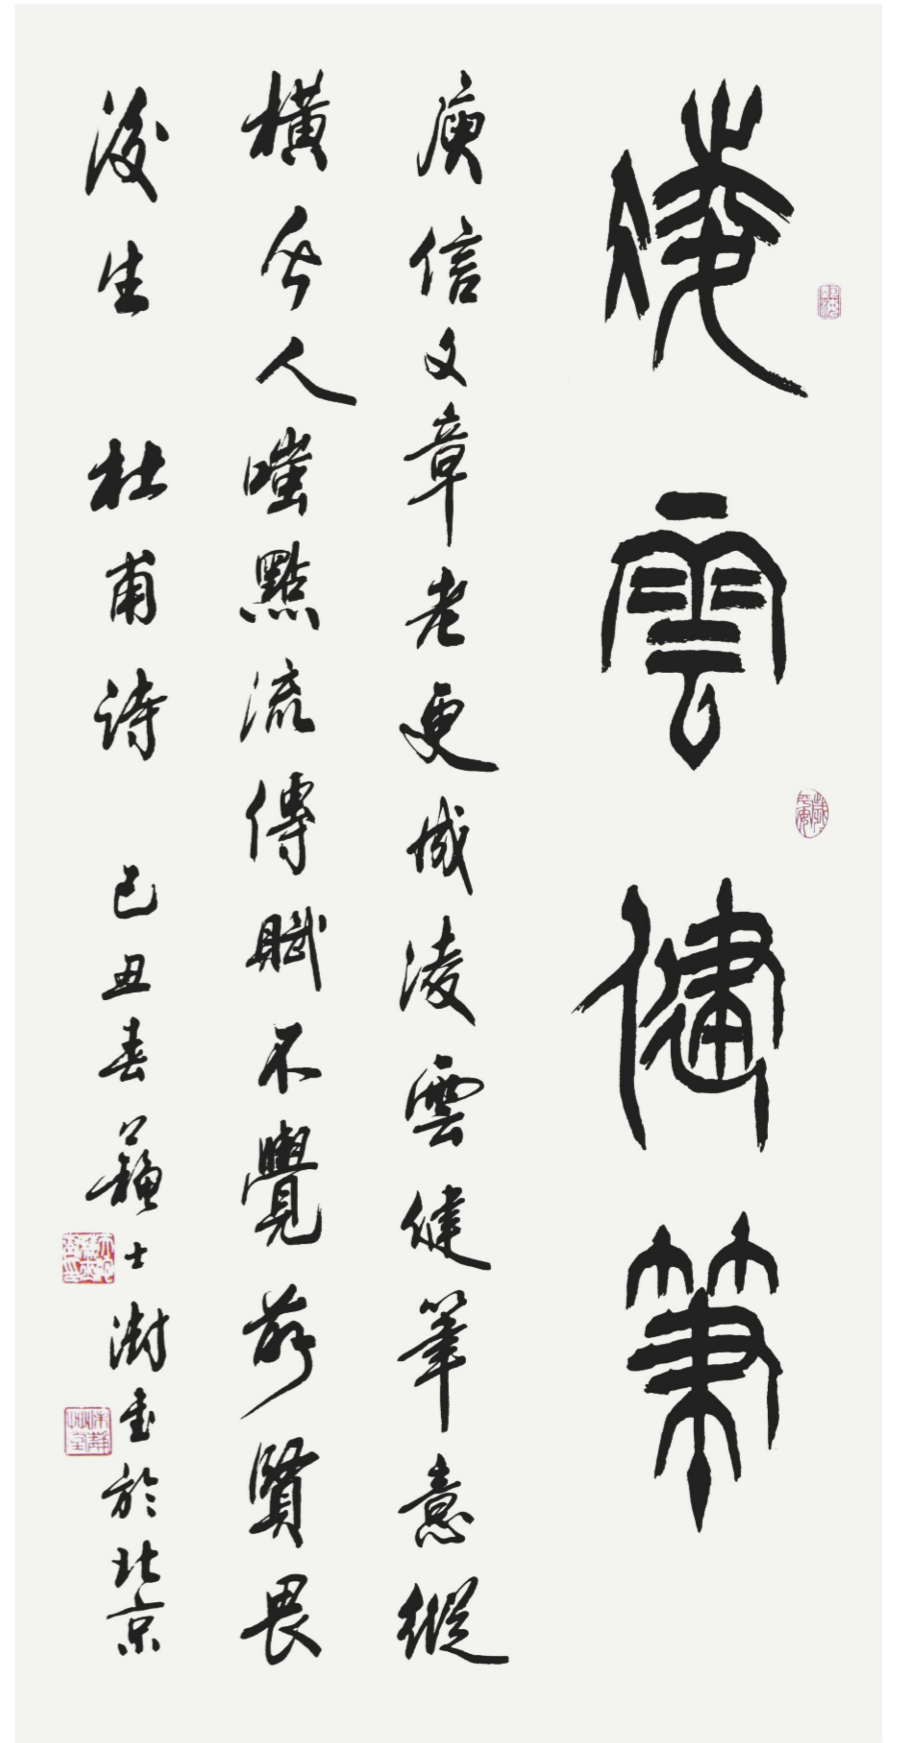 凌雲健筆
庾信文章老更成凌雲健筆意縱
橫今人嗤點流傳賦不覺前賢畏
後生 杜甫詩 己丑春蘇士澍書於北京